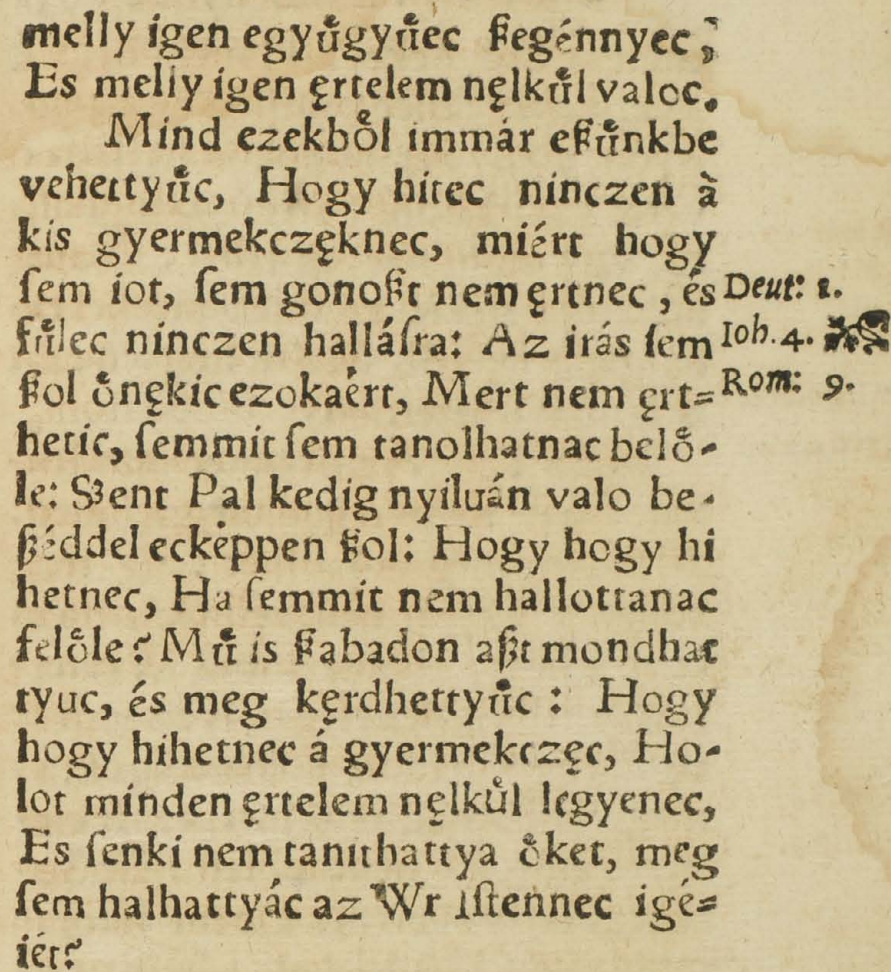 melly igen egyůgyůec ßegénnyec,
Es melly igen ęrtelem nęlkůl valoc.
Mind ezekbo̊l immár eßůnkbe
vehettyůc, Hogy hitec ninczen à
kis gyermekczęknec, miért hogy
ſem iot, ſem gonoßt nem ęrtnec, és Deut: 1.
fůlec ninczen halláſra: Az irás ſem Ioh. 4.
ßol o̊nękic ezokaért, Mert nem ęrt= Rom: 9.
hetic, ſemmit ſem tanolhatnac belo̊-
le: Szent Pal kedig nyiluán valo be-
ßéddel ecképpen ßol: Hogy hogy hi
hetnec, Ha ſemmit nem hallottanac
felo̊le? Mů is ßabadon aßt mondhat
tyuc, és meg kęrdhettyůc: Hogy
hogy hihetnec á gyermekczęc, Ho-
lot minden ęrtelem nęlkůl legyenec,
Es ſenki nem tanithattya o̊ket, meg
ſem halhattyác az Wr iſtennec igé=
iét?